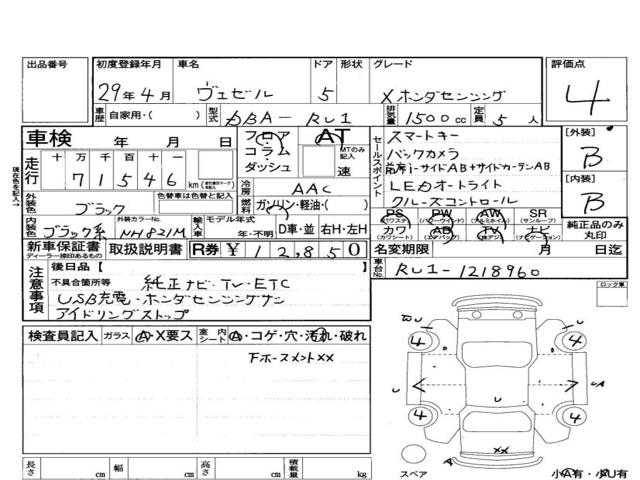 出品番号 初度登録年月 車名 ドア 形状 グレード 評価点
29年4月 ヴェゼル 5 Xホンダセンシング 4
車歴 自家用・( ) 型式 DBA-RU1 排気量 1500cc 定員 5人
車検 年 月 日 フロア AT スマートキー [外装]
走行 十万千百十一 コラム MTのみ記入 セールスポイント バックカメラ B
71546 km ダッシュ 速
LEDオートライト [内装]
外装色 ブラック 色替車は色替と記入 冷房 AAC クルーズコントロール B
燃料 ガソリン・軽油・( ) PS PW AW SR
内装色 ブラック系 外装カラーNo. NH821M 輸入車 モデル年式 年・不明 D車・並 右H・左H カワ AB TV ナビ 純正品のみ丸印
現在の色を記入→
新車保証書 取扱説明書 R券 ¥12,850 名変期限 月 日迄
ディーラー捺印あるもの
車台No. RU1-1218960
注意事項 後日品【
不具合箇所等 純正ナビ・TV・ETC
USB充電・ホンダセンシングサン
アイドリングストップ
ロック車
検査員記入 ガラス A・X要ス 室内シート A・コゲ・穴・汚れ・破れ
U
4 4
U UA
4 4
U
XX
A
スペア 小A有・小U有
長さ cm 幅 cm 高さ cm 積載量 kg